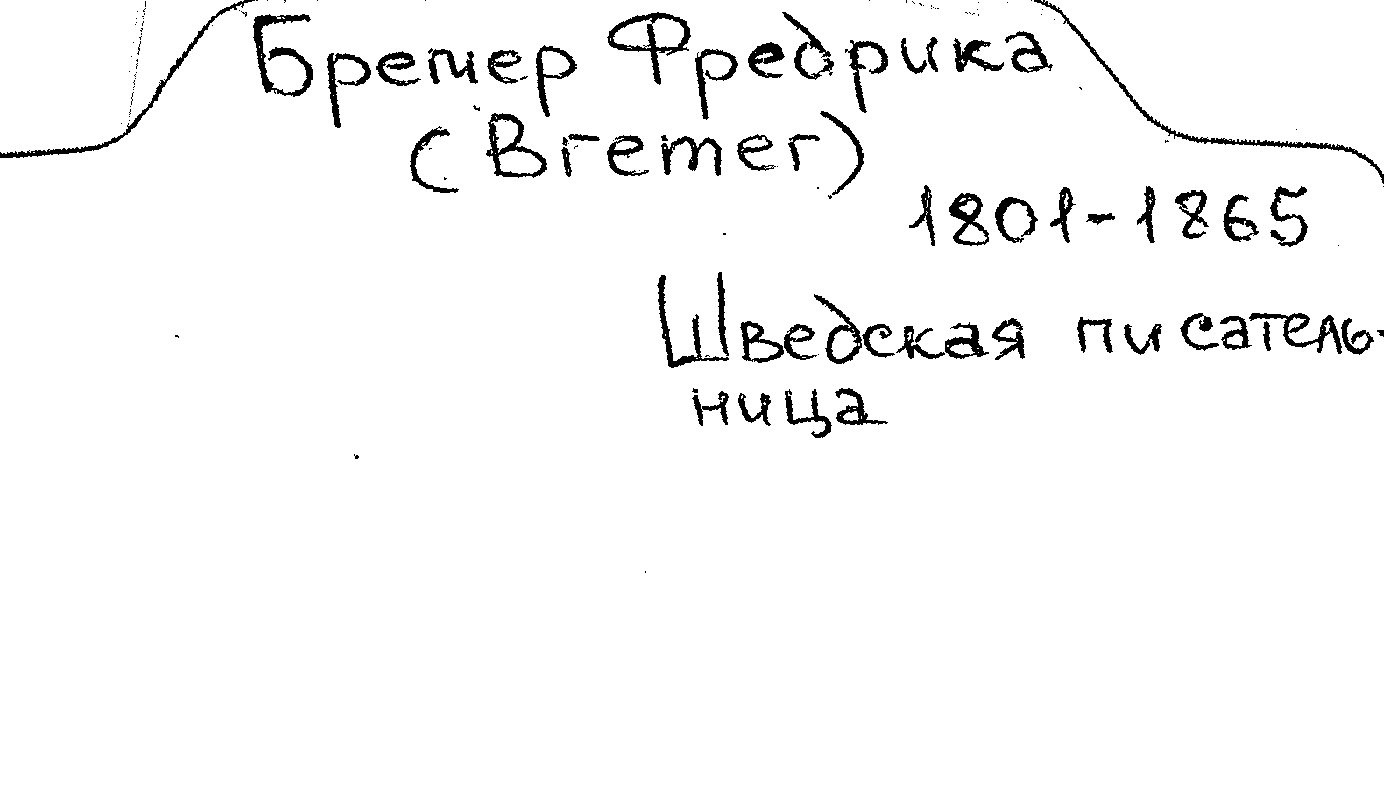 Бремер Фредрика
(Bremer)
1801-1865
Шведская писатель-
ница